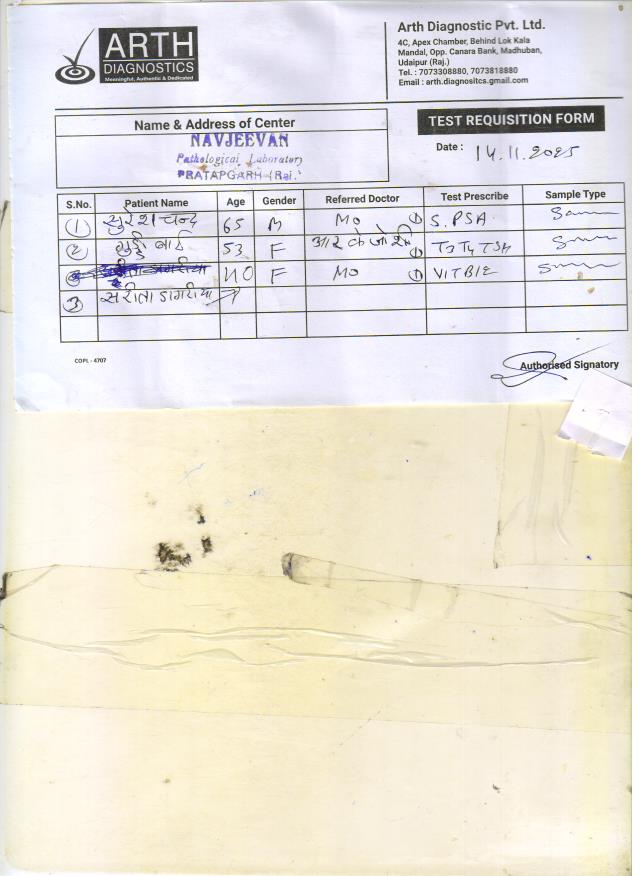 ARTH
DIAGNOSTICS
Meaningful, Authentic & Dedicated
Arth Diagnostic Pvt. Ltd.
4C, Apex Chamber, Behind Lok Kala
Mandal, Opp. Canara Bank, Madhuban,
Udaipur (Raj.)
Tel. : 7073308880, 7073818880
Email : arth.diagnositcs.gmail.com
Name & Address of Center
NAVJEEVAN
Pathological Laboratory
PRATAPGARH (Raj.)
TEST REQUISITION FORM
Date : 14.11.2025
S.No. Patient Name Age Gender Referred Doctor Test Prescribe Sample Type
1 सुरेश चन्द्र 65 M MO ① S.PSA
2 गुड्डी बाई 53 F आर के जोशी ① T3 T4 TSH
40 F MO ① VITB12
3 सरीता डागरीया
COPL - 4707
Authorised Signatory